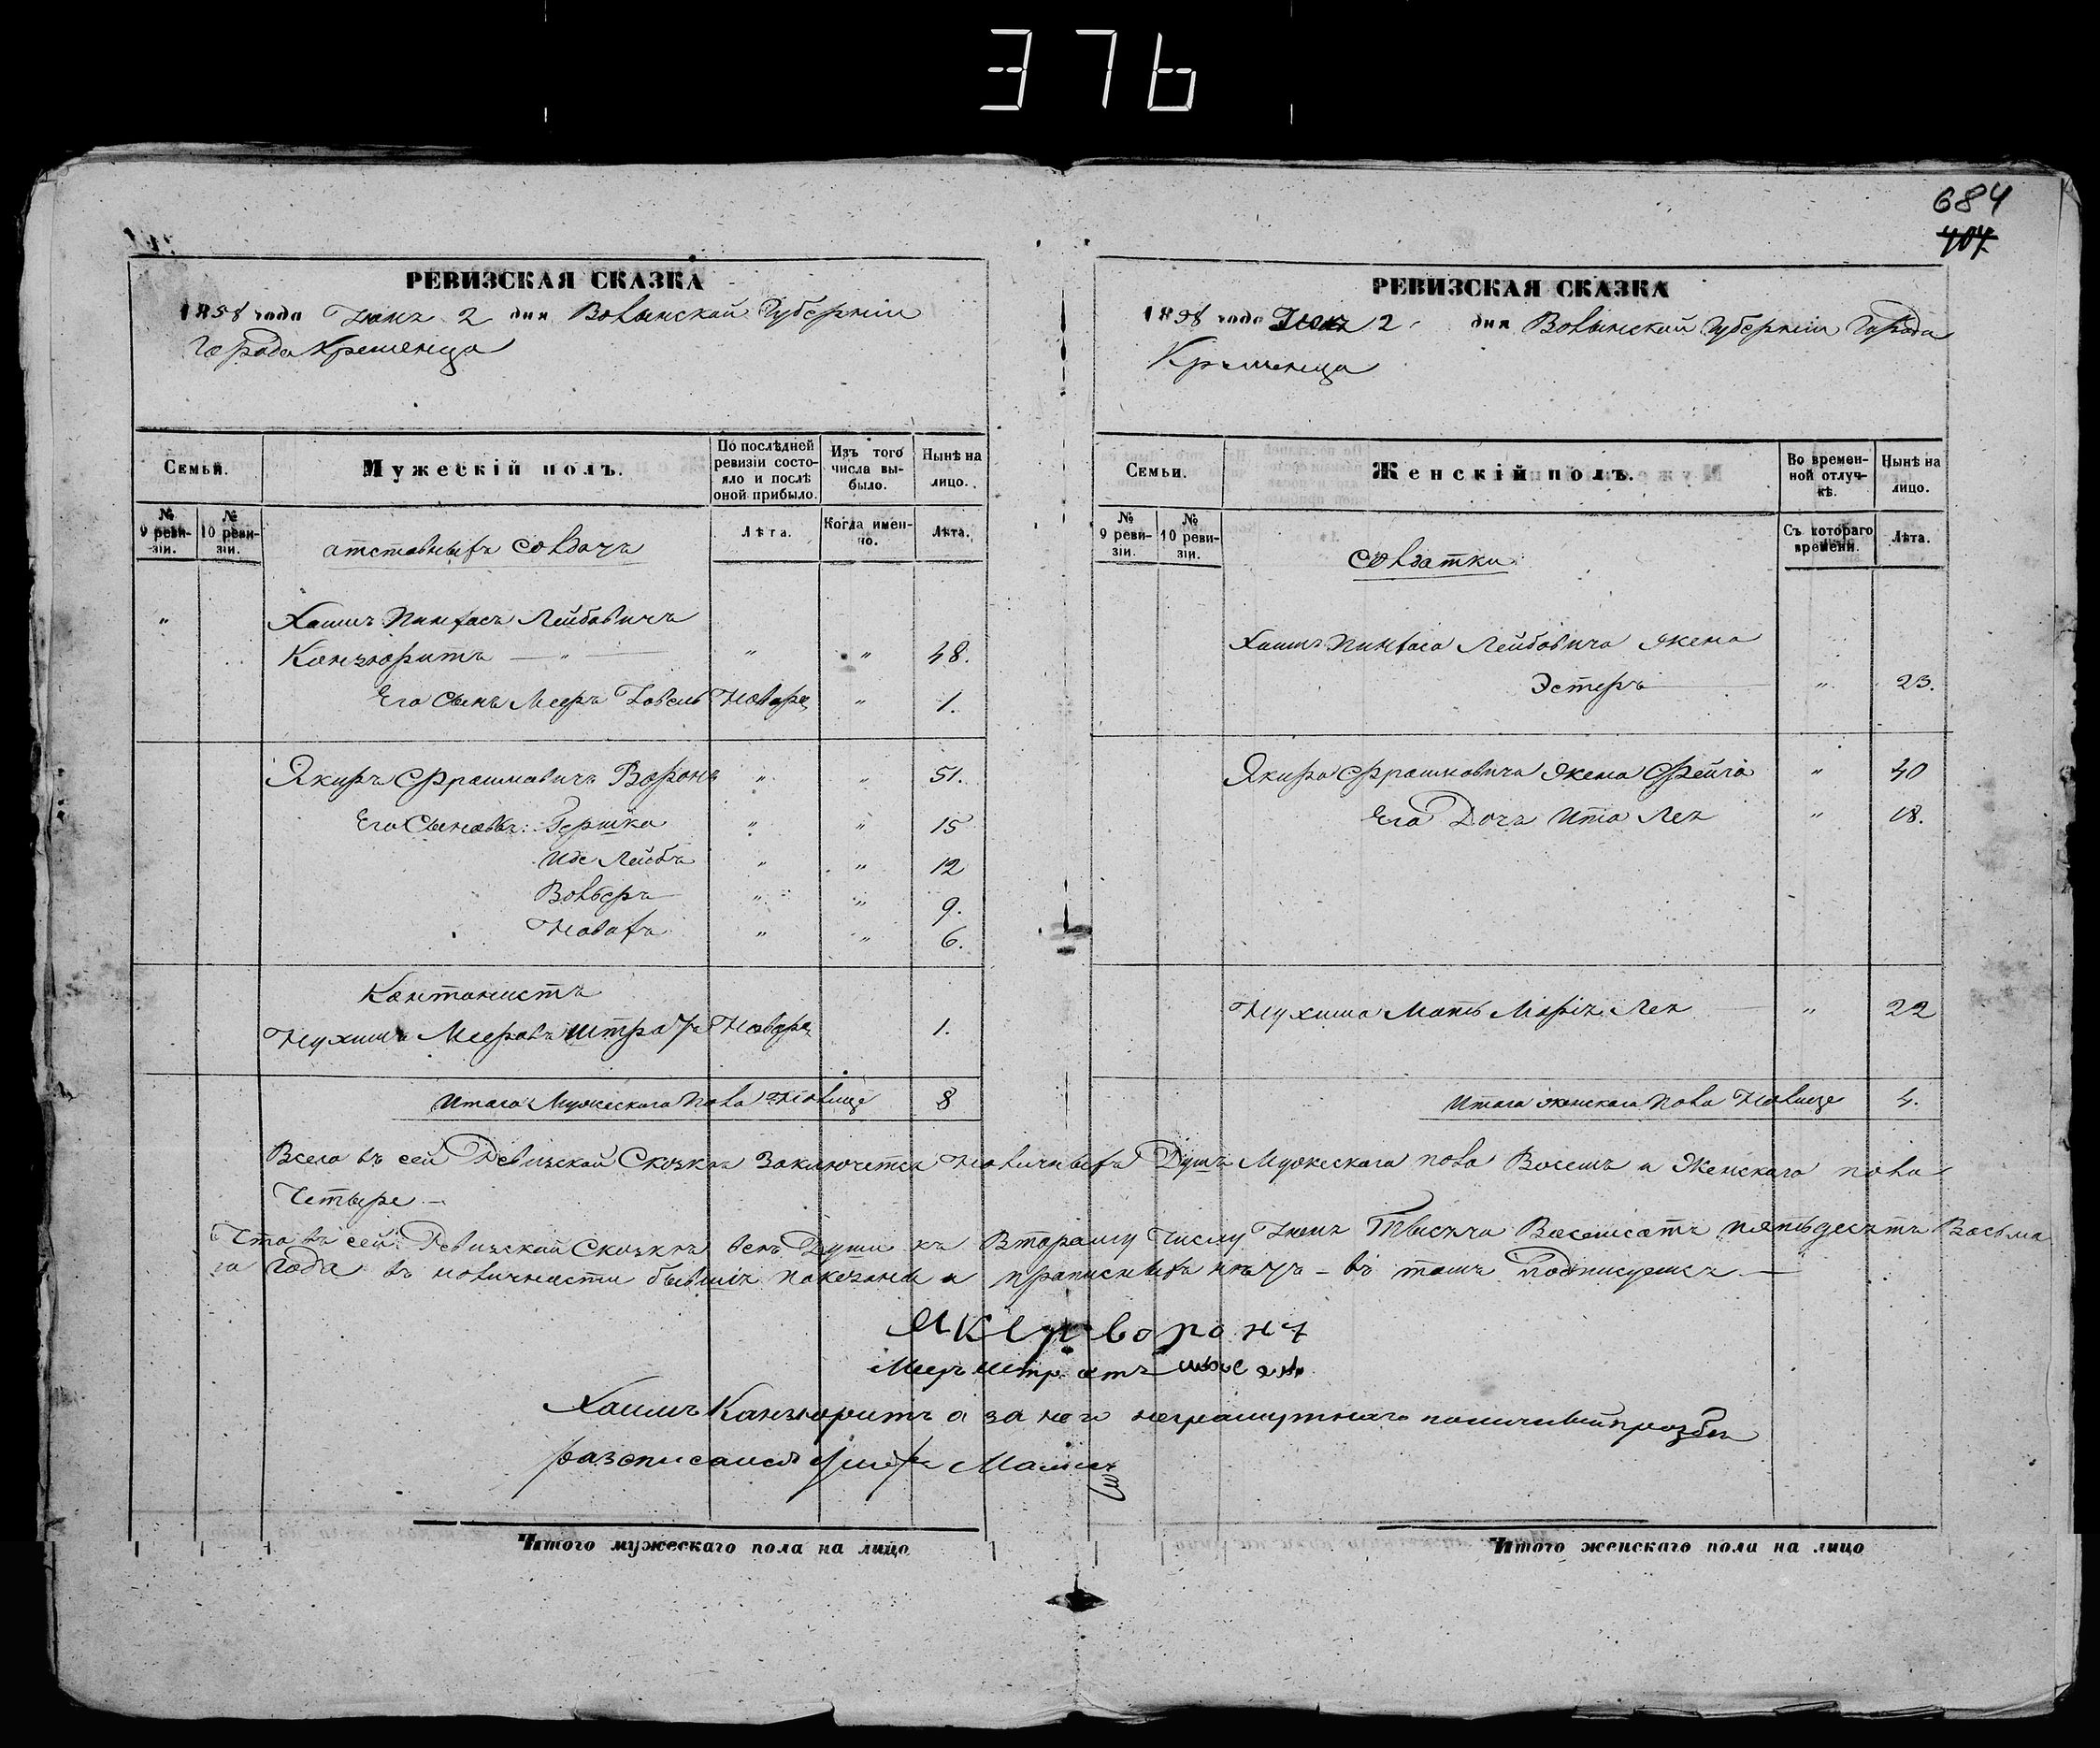 376
684
404
РЕВИЗСКАЯ СКАЗКА
1858 года Іюня 2 дня Волынской Губерніи
Города Кременца
Семьи.
Мужескій полъ.
По послѣдней ревизіи состояло и послѣ оной прибыло.
Изъ того числа выбыло.
Нынѣ на лицо.
№ 9 ревизіи.
№ 10 ревизіи.
Лѣта.
Когда именно.
Лѣта.
атставныхъ солдатъ
Хаимъ Пинхасъ Лейбовичъ
Канзюритъ — " — " " 48.
Его Сынъ Мееръ Іовель Новоро " 1.
Якиръ Фраимовичъ Воронъ " " 51.
Его Сыновья: Гершко " " 15
Иде Лейбъ " " 12
Вольберъ " " 9.
" " 6.
Кантонистъ
Нухимъ Мееровъ Штра Новоро 1.
Итого Мужескаго пола Налице 8
РЕВИЗСКАЯ СКАЗКА
1858 года Іюня 2 дня Волынской Губерніи Города
Кременца
Семьи.
Женскій полъ.
Во временной отлучкѣ.
Нынѣ на лицо.
№ 9 ревизіи.
№ 10 ревизіи.
Съ котораго времени.
Лѣта.
Солдатки
Хаима Пинхаса Лейбовича жена
Эстеръ " 23.
Якира Фраимовича жена Фейга " 40
Его Дочь Ита Лея " 18.
Нухима Мать Марія Лея " 22
Итого женскаго пола Налице 4.
Всего въ сей Ревизской Сказки Заключется Наличныхъ Душъ Мужескаго пола Восемъ а Женскаго пола
Четыре —
Что въ сей Ревизской Сказкѣ всѣ Души къ Второму Числу Іюня Тысяча Восемсотъ пятьдесятъ Восьма
го Года въ наличности бывшія показаны а прописныхъ нѣтъ — въ томъ Подписуемся —
Якер воронъ
Меер Штр
Хаимъ Канзюритъ а за него неграмутнаго по личный прозбѣ
разсписался
Итого мужескаго пола на лицо
Итого женскаго пола на лицо